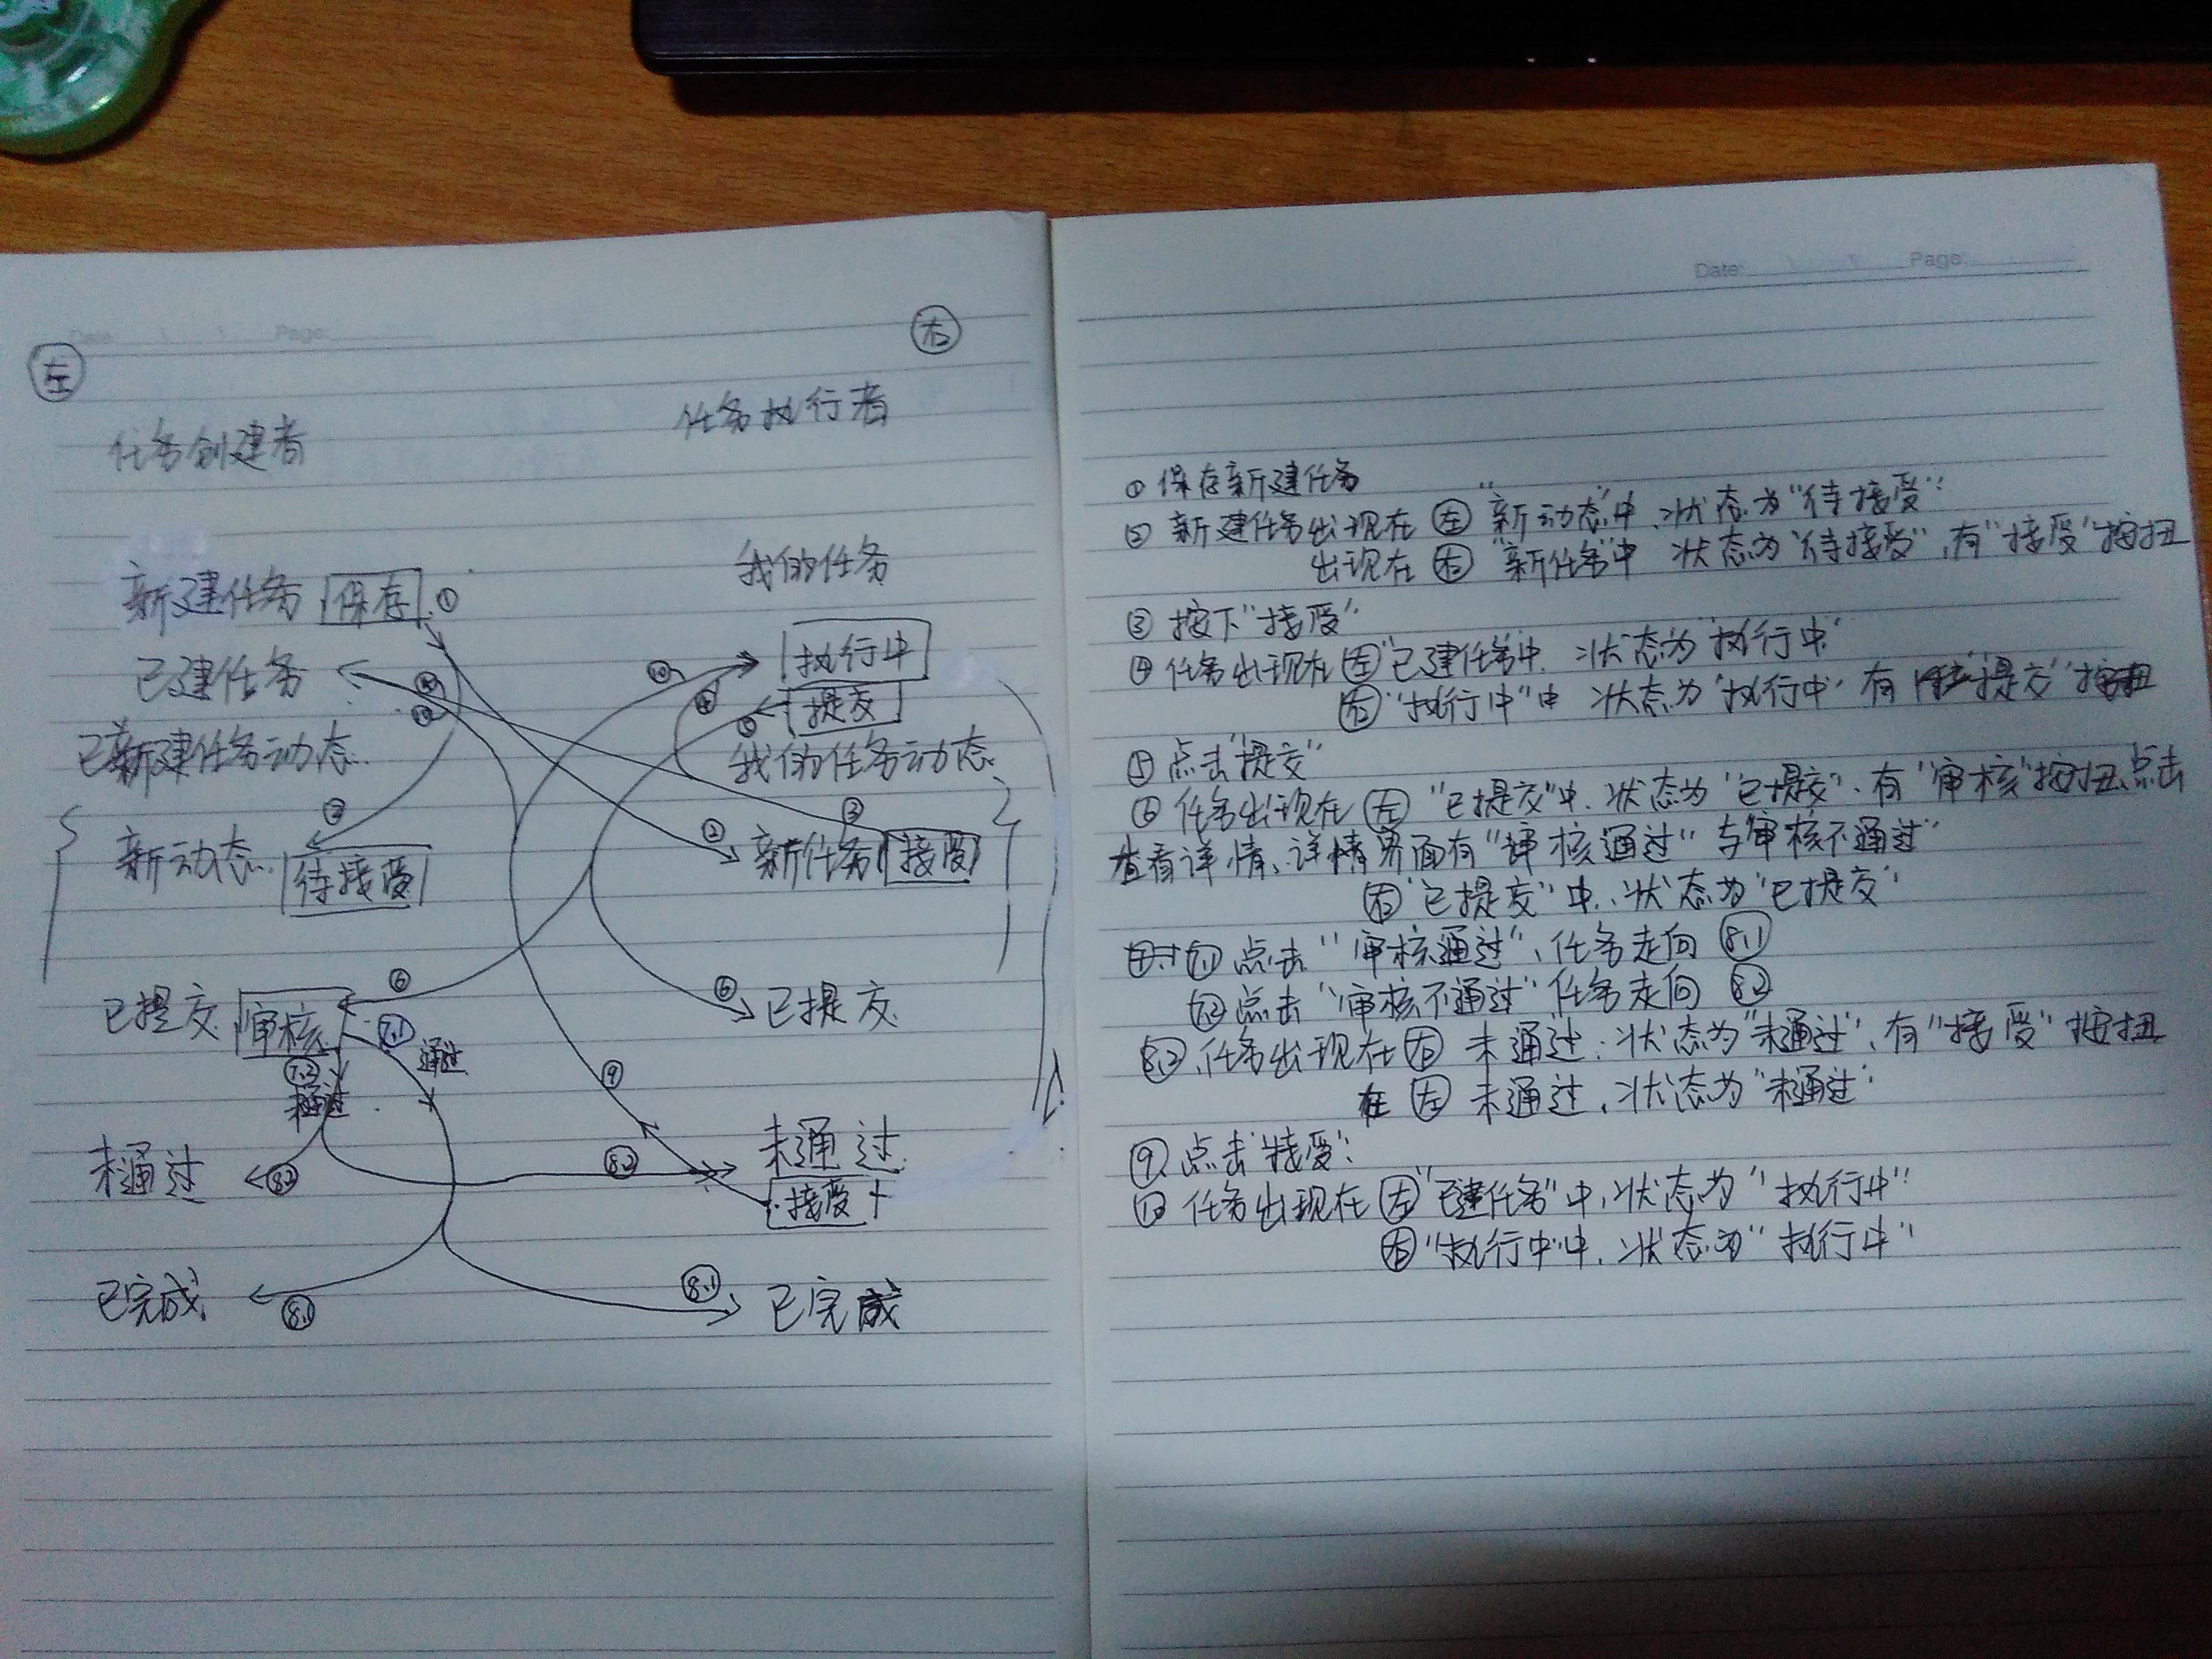 Date: Page:
左
右
任务创建者
任务执行者
新建任务 保存 ①
我的任务
已建任务
执行中
提交
已新建任务动态
我的任务动态
新动态 待接受
② 新任务 接受
②
③
④
⑤
⑩
已提交 审核
已提交
⑥
⑥
7.1 通过
7.2 未通过
⑨
未通过
未通过
接受
8.2
8.2
已完成
已完成
8.1
8.1
Date: Page:
① 保存新建任务
② 新建任务出现在 左 "新动态"中、状态为"待接受"
出现在 右 "新任务"中 状态为"待接受",有"接受"按扭
③ 按下"接受"
④ 任务出现在 左 "已建任务中. 状态为"执行中"
右 "执行中"中 状态为"执行中" 有 "提交"按扭
⑤ 点击"提交"
⑥ 任务出现在 左 "已提交"中. 状态为"已提交". 有"审核"按扭、点击
查看详情、详情界面有"审核通过"与"审核不通过"
右 "已提交"中.状态为"已提交"
7.1 点击"审核通过"、任务走向 8.1
7.2 点击"审核不通过"任务走向 8.2
8.2 、任务出现在 右 未通过:状态为"未通过",有"接受"按扭
在 左 未通过,状态为"未通过"
⑨ 点击"接受"
⑩ 任务出现在 左 "已建任务"中,状态为"执行中"
右 "执行中"中.状态为"执行中"